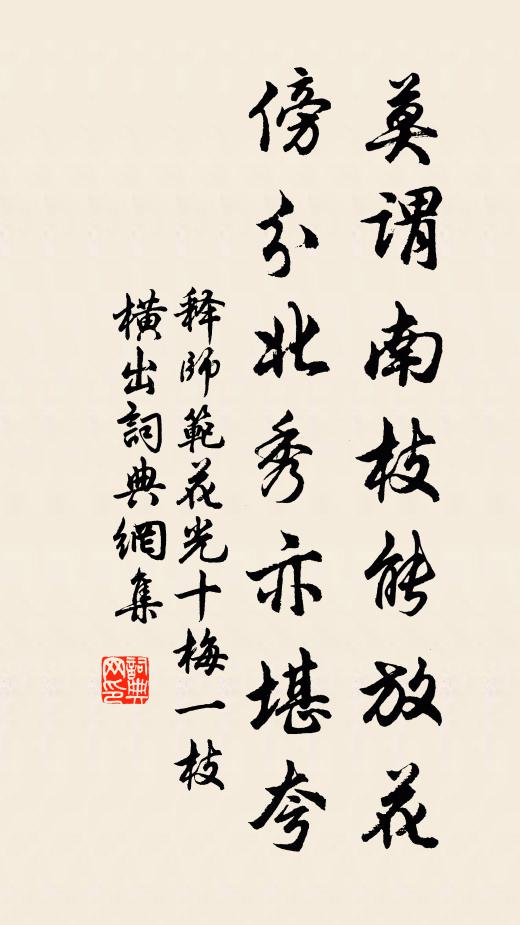 莫谓南枝能放花
傍分北秀亦堪夸
释師範花光十梅一枝
横出詞典網集
詞典网印